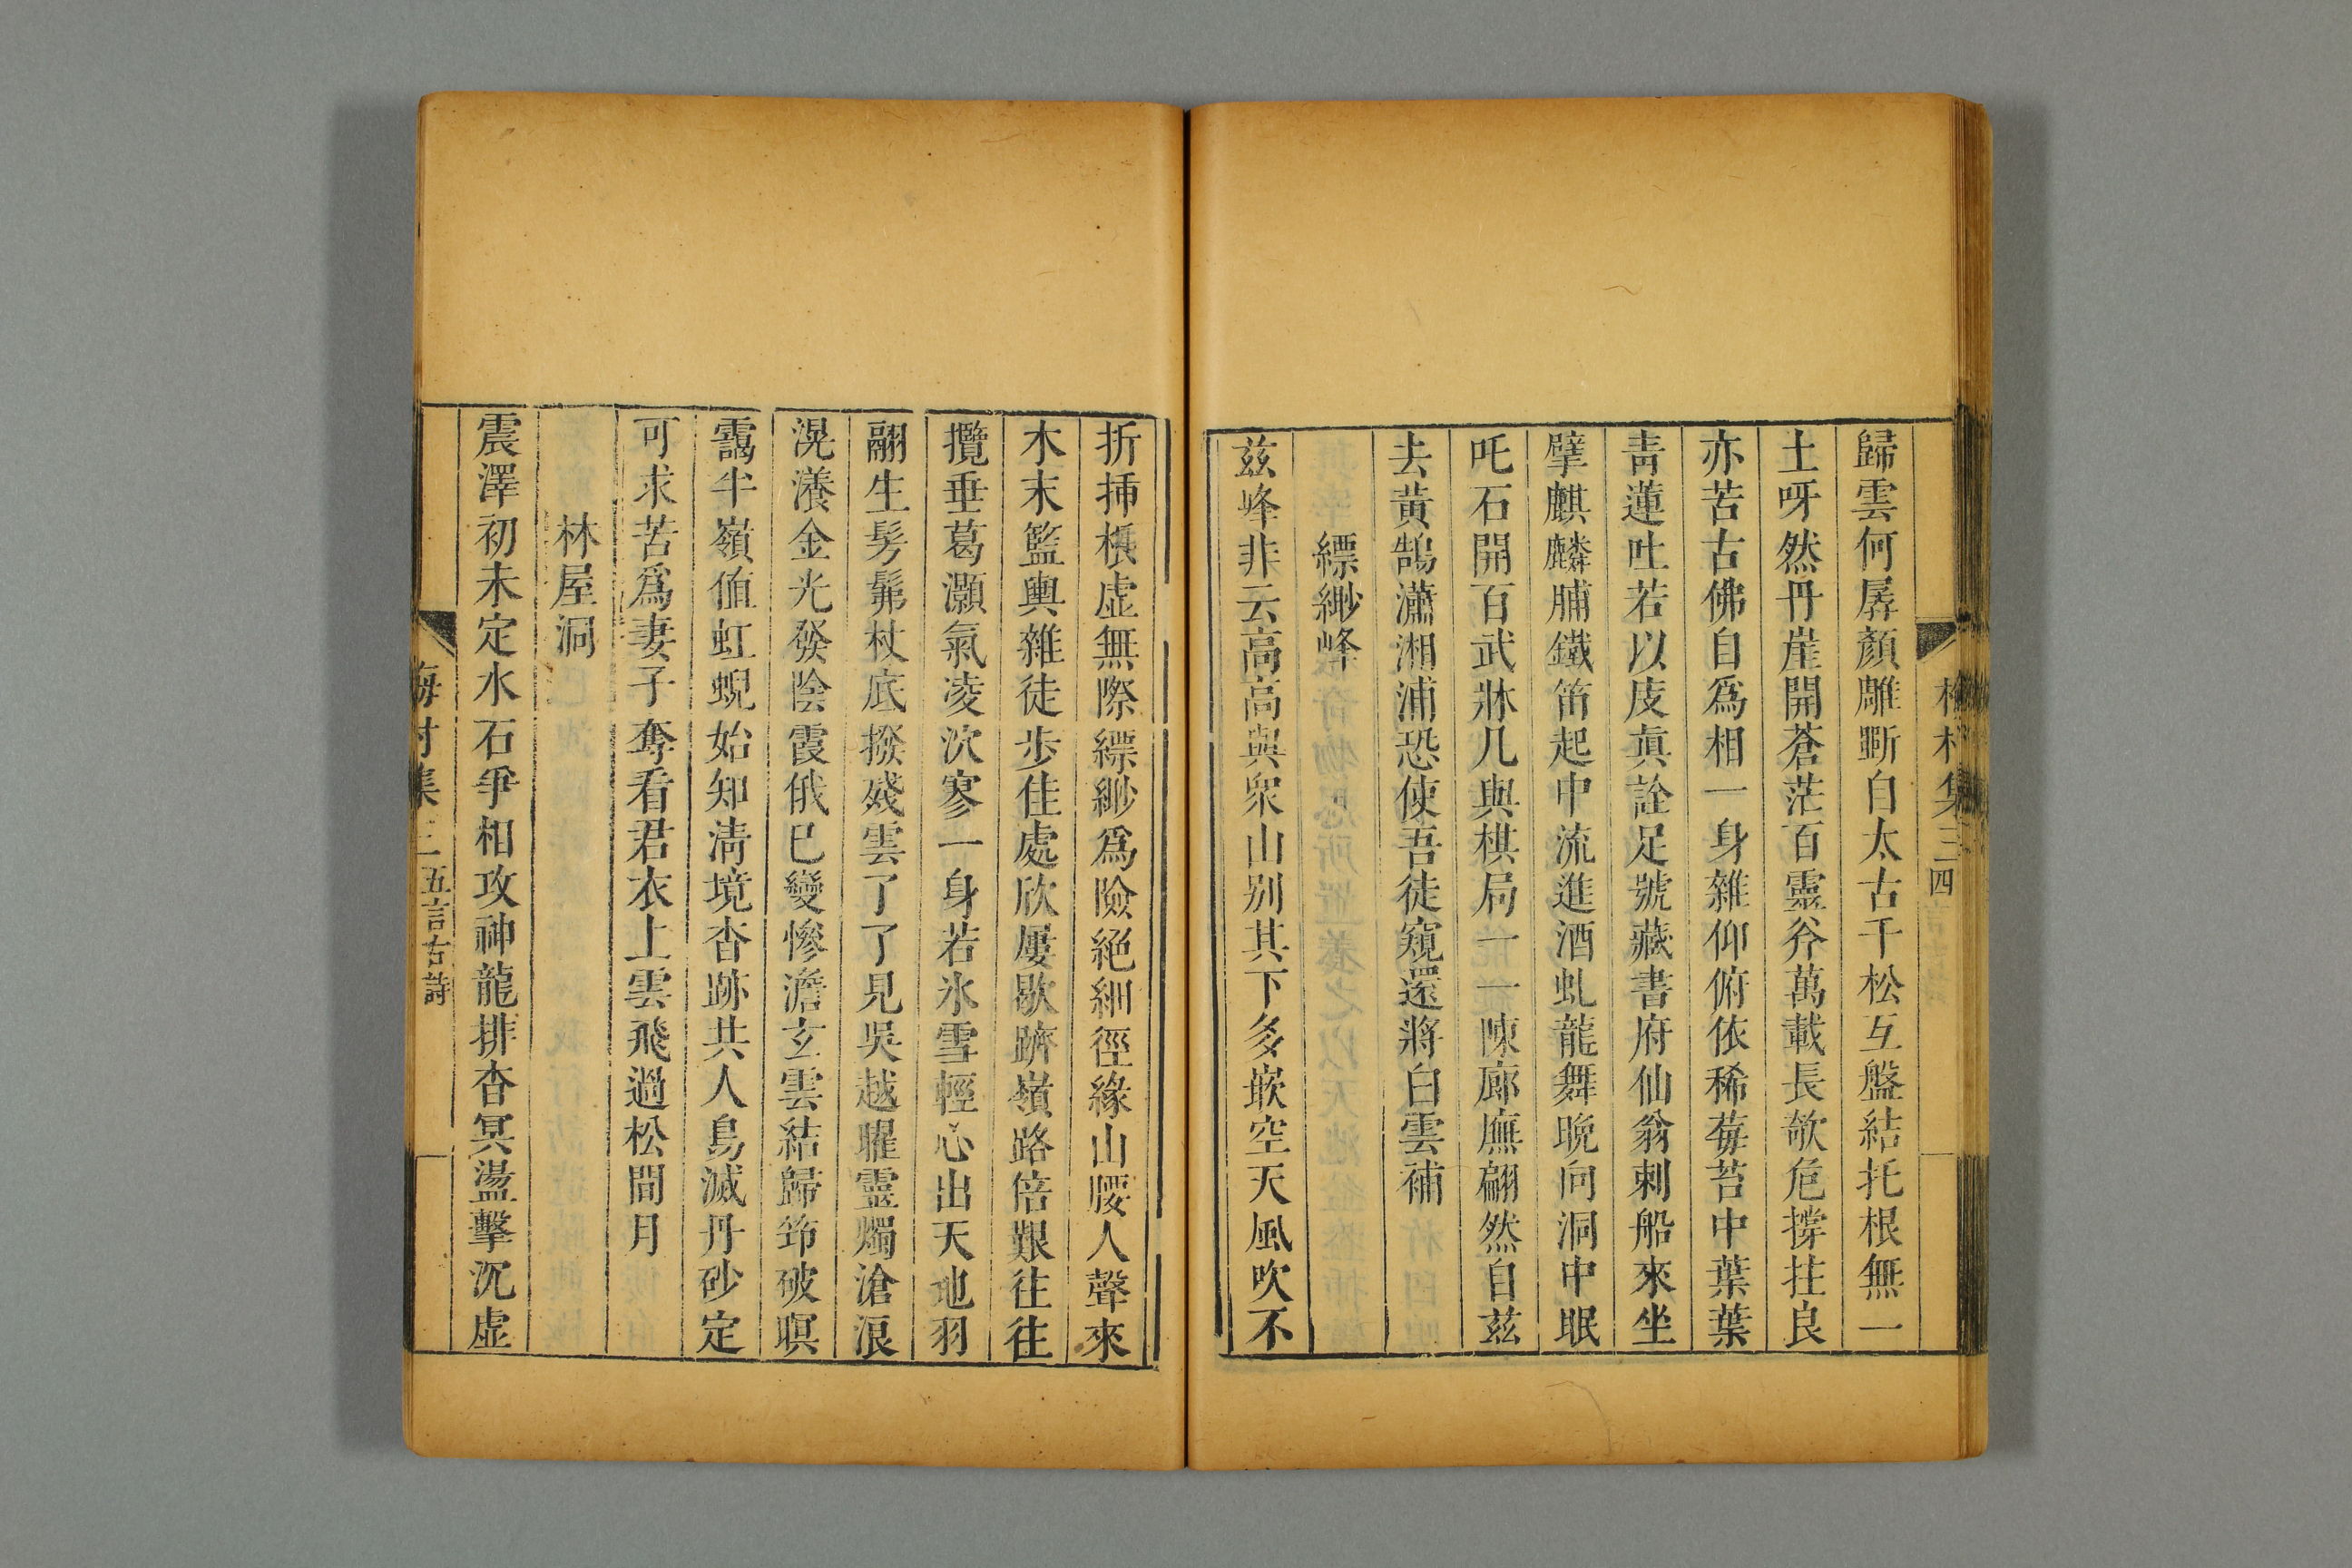 梅村集三 四
歸雲何孱顏雕斲自太古千松互盤結托根無一
土呀然丹崖開蒼茫百靈斧萬載長欹危撐拄良
亦苦古佛自爲相一身雜仰俯依稀莓苔中葉葉
青蓮吐若以庋眞詮足號藏書府仙翁刺船來坐
擘麒麟脯鐵笛起中流進酒虬龍舞晚向洞中眠
叱石開百武牀几與棋局一一陳廊廡翩然自茲
去黃鵠瀟湘浦恐使吾徒窺還將白雲補
縹緲峰
茲峰非云高高與衆山別其下多嵌空天風吹不
折插根虛無際縹緲爲險絕細徑緣山腰人聲來
木末籃輿雜徒步佳處欣屢歇躋嶺路倍艱往往
攬垂葛灝氣凌泬寥一身若氷雪輕心出天地羽
翮生髣髴杖底撥殘雲了了見吳越曜靈燭滄浪
滉瀁金光發陰霞俄已變慘澹玄雲結歸筇破暝
靄半嶺値虹蜺始知淸境杳跡共人鳥滅丹砂定
可求苦爲妻子奪看君衣上雲飛過松間月
林屋洞
震澤初未定水石爭相攻神龍排杳冥盪擊沉虛
梅村集三 五言古詩